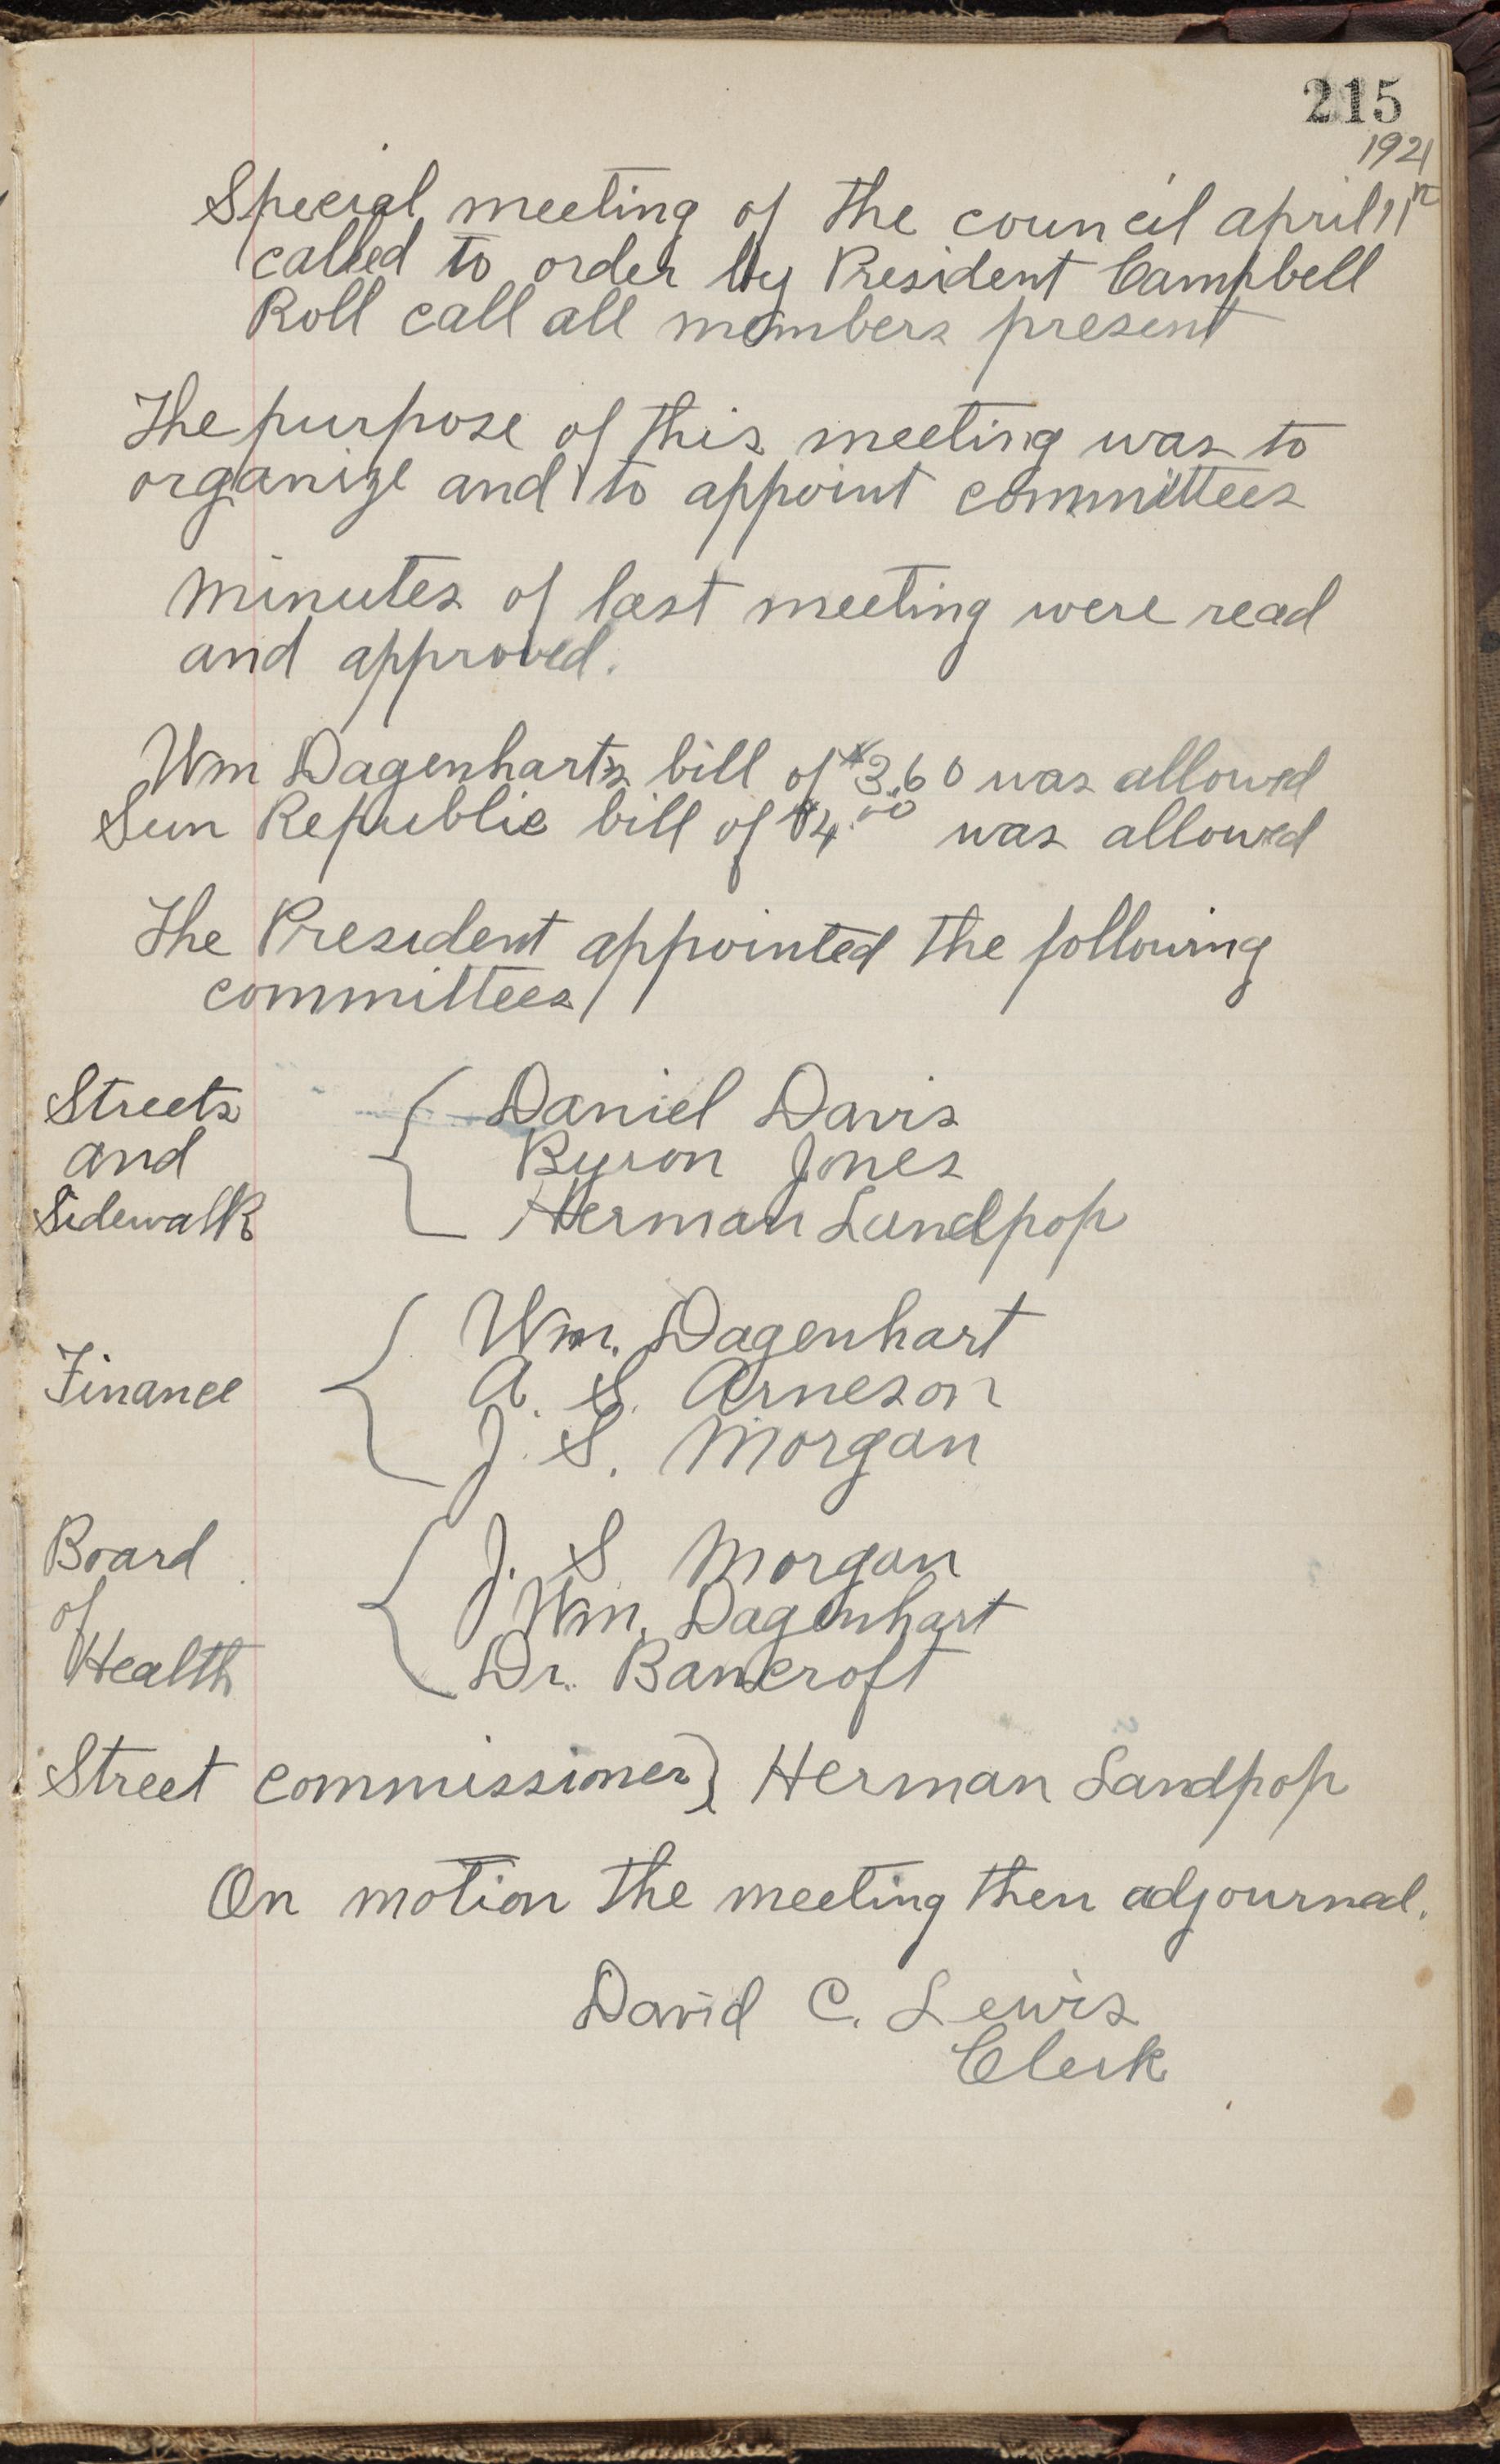 215
1921
Special meeting of the council april 11th
called to order by President Campbell
Roll call all members present
The purpose of this meeting was to
organize and to appoint committees
Minutes of last meeting were read
and approved.
Wm Dagenharts bill of $3.60 was allowed
Sun Republic bill of $4.00 was allowed
The President appointed the following
committees
Streets
and
Sidewalk
{ Daniel Davis
Byron Jones
Herman Sandpop
Finance
{ Wm. Dagenhart
A. S. Arneson
J. S. Morgan
Board
of
Health
{ J. S Morgan
Wm. Dagenhart
Dr. Bancroft
Street commissioner } Herman Sandpop
On motion the meeting then adjourned.
David C. Lewis
Clerk